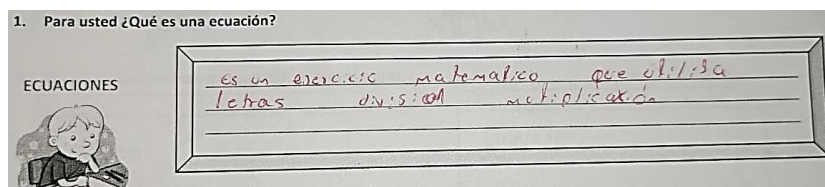 1. Para usted ¿Qué es una ecuación?
ECUACIONES
Es un ejercicio matematico que utilisa
letras division multiplicación